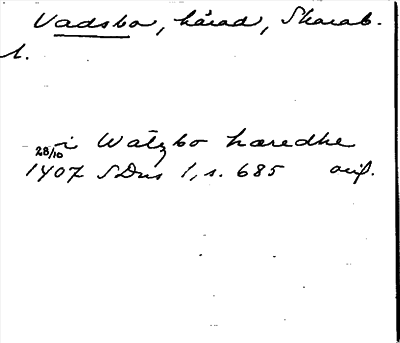 Vadsbo, härad, Skarab.
l.
i Watzbo haredhe
28/10
1407 SDns 1, s. 685 orig.